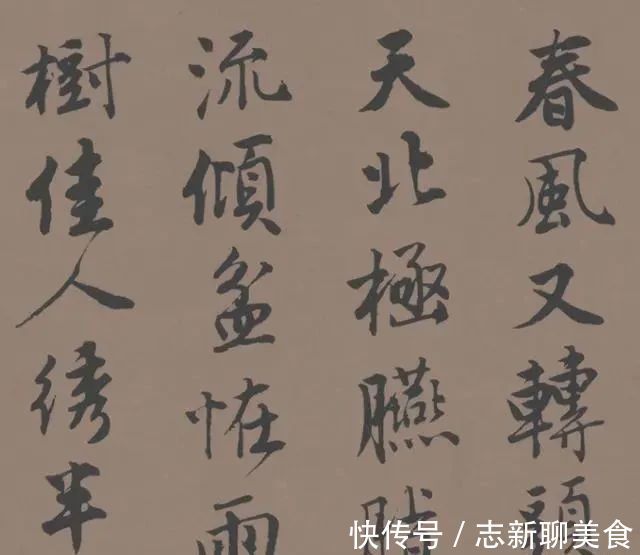 春風又轉頭
天北極臙
流傾盆恠雨
樹佳人綉半
快传号 / 志新聊美食